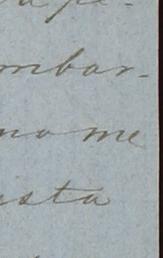 mbar-
no me
asta